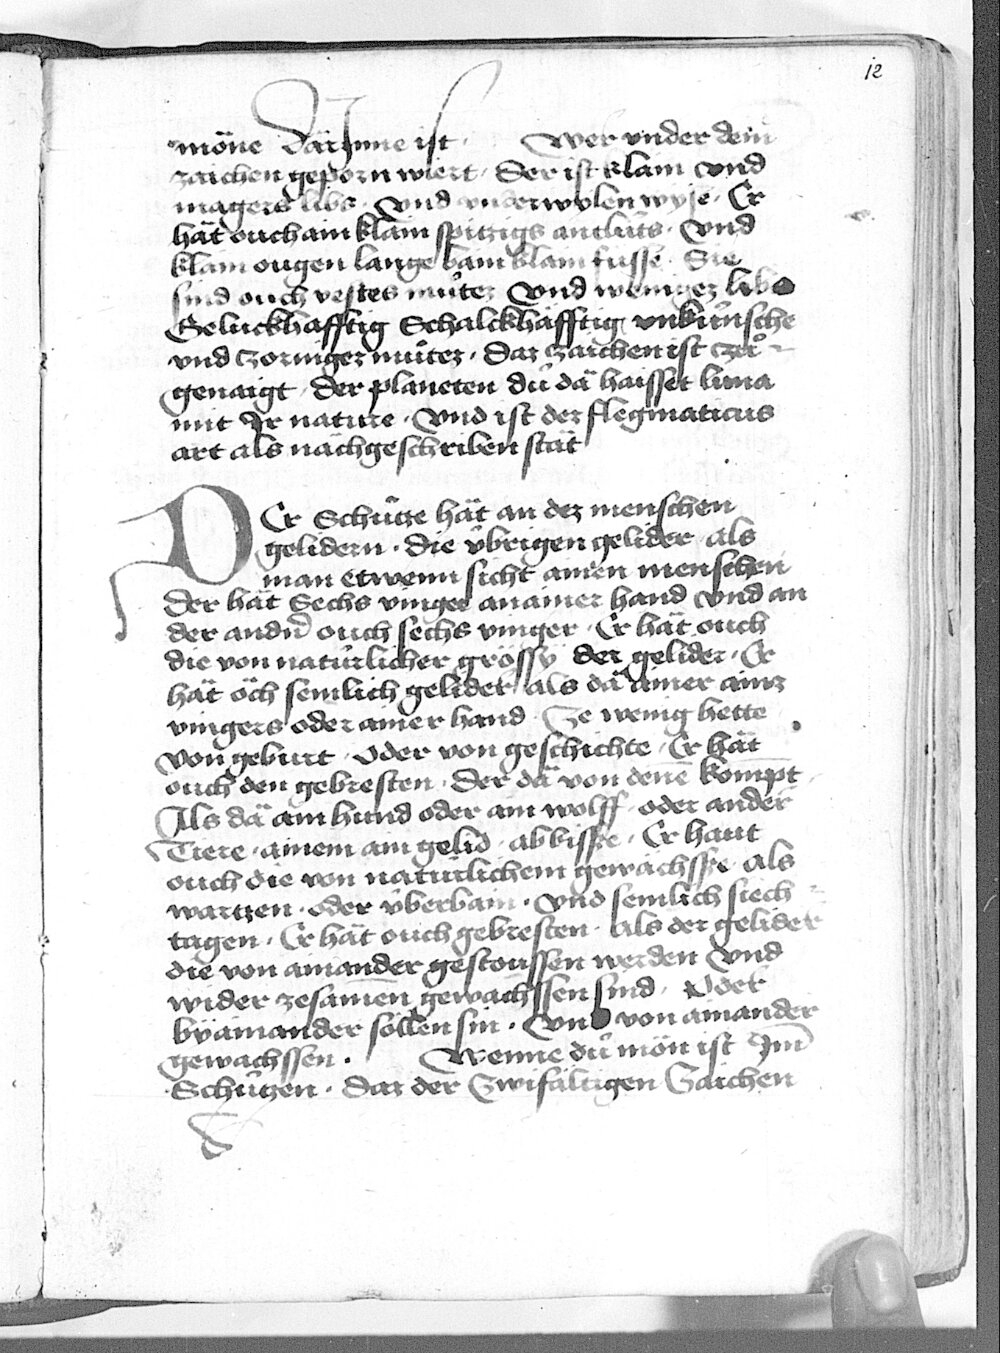 12
möne därJnne ist · Wer vnder dem
zaichen geporn wiert · Der ist klain vnd
magers libs · vnd vnderwylen wyse · Er
hät ouch ain klain spitzigs antlüts · vnd
klain ougen lange bain klain füsse · Sie
sind ouch vestes mütes vnd weniger lib
Geluckhafftig Schalckhäfftig vnkünsche
vnd zorniger müter · Daz zaichen ist czů
genaigt · der planeten dü dä haisset luna
mit Ir nature · Vnd ist der flegmaticus
art als nächgeschriben stät
DEr Schütze hät an dez menschen
gelidern · die übrigen gelider als
man etwenn sicht ainen menschen
Der hät Sechs vinger an ainer hand vnd an
der andn̄ ouch sechs vinger · Er hät ouch
die von natürlicher grössy der gelider · Er
hät öch semlich gelider als dä ainer ainz
vingers oder ainer hand Ze wenig hette
von geburt · oder von geschichte · Er hät
ouch den gebresten · der dä von denē kompt ·
Als dä ain hund oder ain wolff · oder ander
Tiere · ainem ain gelid · abbisse · Er haut
ouch die von natürlichem gewächsse · als
wartzen · oder überbain · vnd semlich siech
tagen · Er hät ouch gebresten · als der gelider
die von ainander gestoussen werden vnd
wider zesamen gewachssen sind · Oder
byainander söllen sin · Vnd von ainander
gewachssen · Wenne dü mön ist Im
Schützen · Daz der Zwifaltigen Zaichen